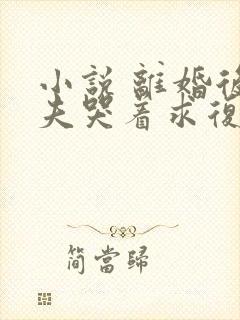 小說 離婚後
夫哭着求復
簡當歸